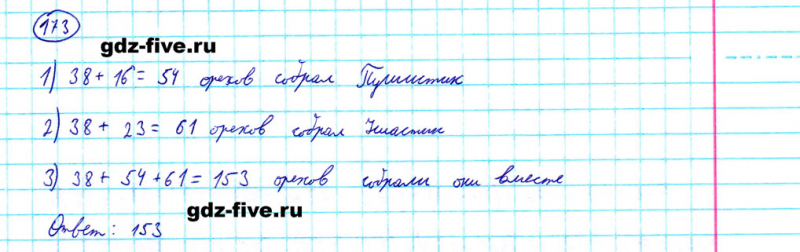 173
gdz-five.ru
1) 38 + 16 = 54 орехов собрал Пушистик
2) 38 + 23 = 61 орехов собрал Ушастик
3) 38 + 54 + 61 = 153 орехов собрали они вместе
gdz-five.ru
Ответ: 153